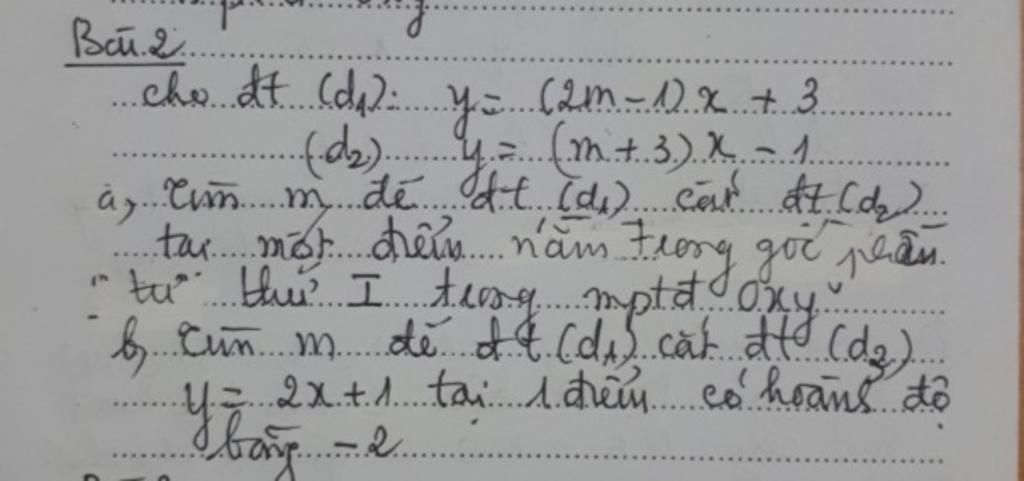 Bài 2
cho đt (d1): y = (2m - 1) x + 3
(d2) y = (m + 3) x - 1
a, Tìm m để đt (d1) cắt đt (d2)
tại một điểm nằm trong góc phần
"tư" thứ I trong mptđ Oxy
b, Tìm m để đt (d1) cắt đt (d3)
y = 2x + 1 tại 1 điểm có hoành độ
bằng - 2